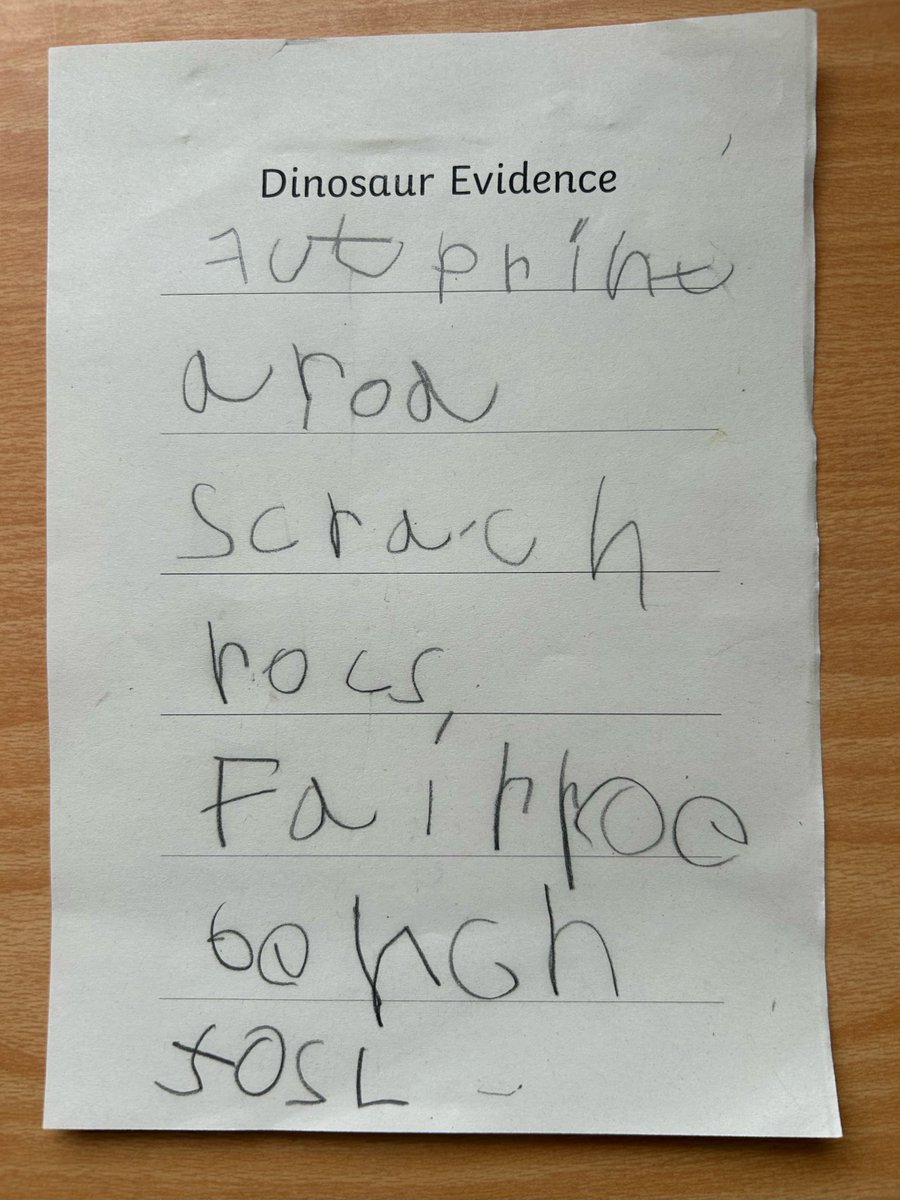 Dinosaur Evidence
futprint
aroa
scrach
rocs
Fairroe
bench
fosl